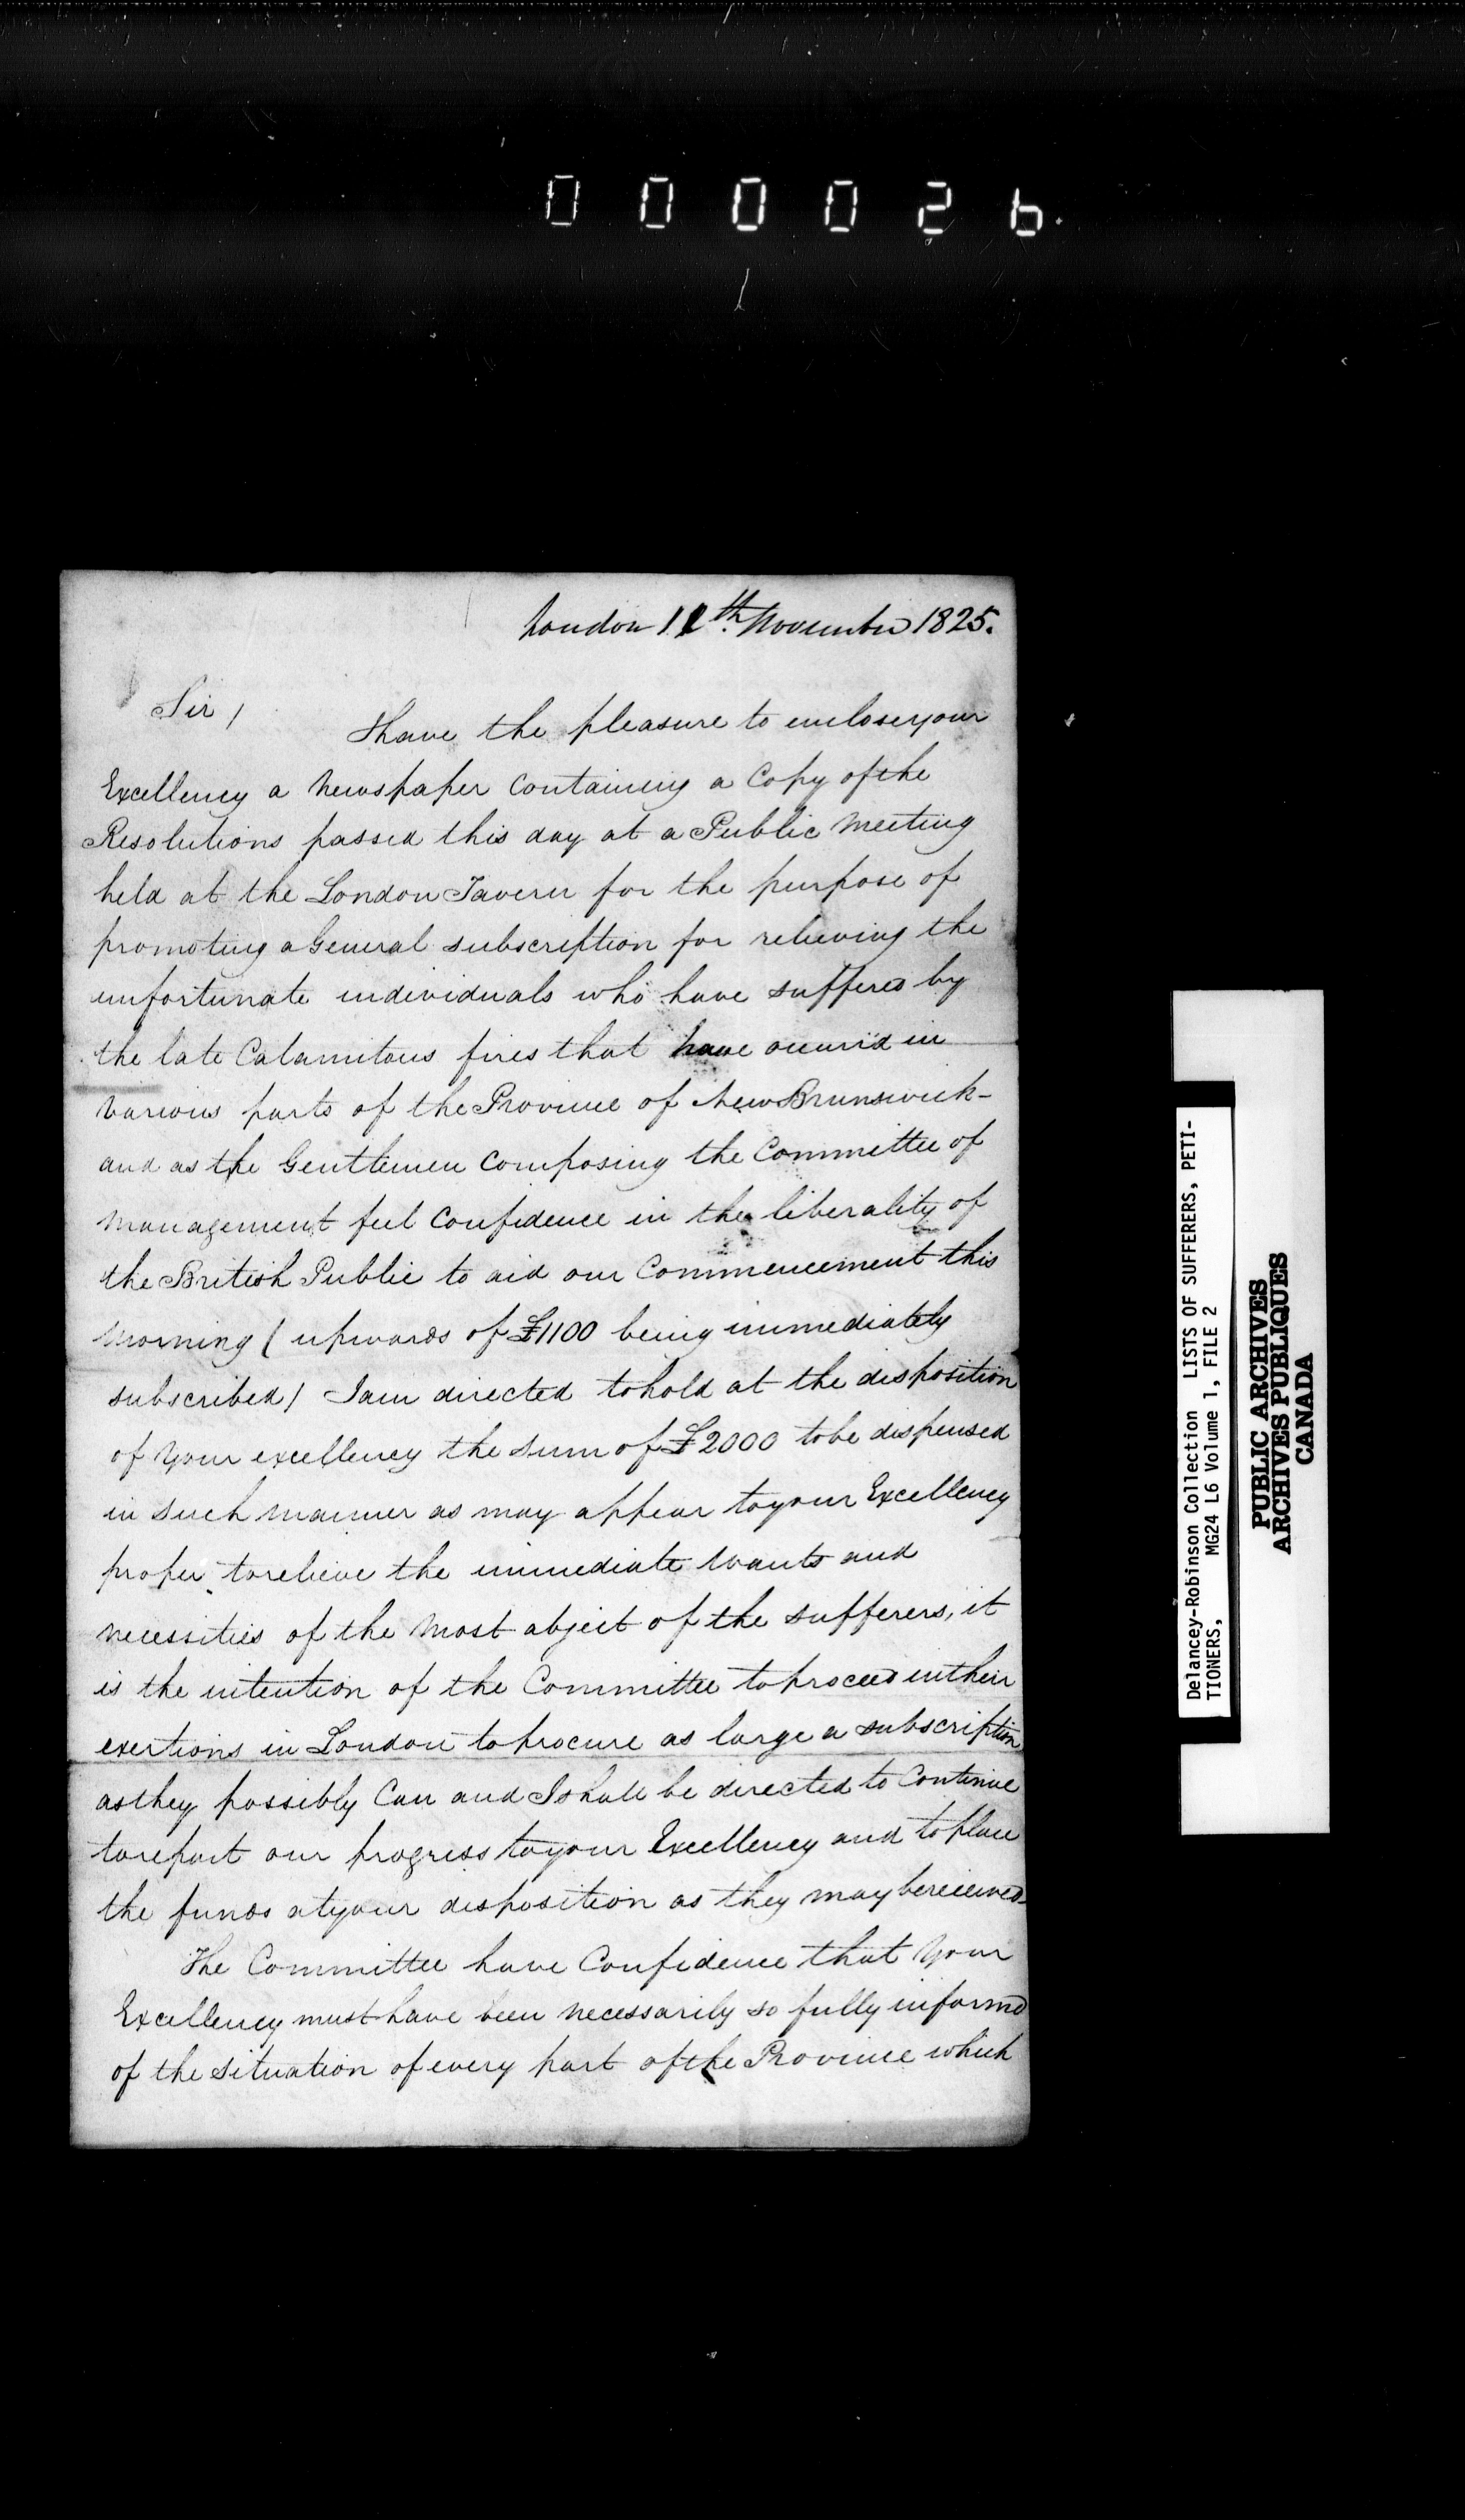 000026
London 11th November 1825.
Sir /
I have the pleasure to enclose your
Excellency a Newspaper Containing a Copy of the
Resolutions passed this day at a Public Meeting
held at the London Tavern for the purpose of
promoting a General subscription for relieving the
unfortunate individuals who have suffered by
the late Calamitous fires that have occurrd in
various parts of the Province of New Brunswick -
and as the Gentlemen Composing the Committee of
Management feel Confidence in the liberality of
the British Public to aid our Commencement this
Morning ( upwards of £1100 being immediately
subscribed / I am directed to hold at the disposition
of your excellency the Sum of £2000 to be dispensed
in such manner as may appear to your Excellency
proper to relieve the immediate Wants and
necessities of the Most abject of the Sufferers, it
is the intention of the Committee to proceed in their
exertions in London to procure as large a subscription
as they possibly Can and I shall be directed to Continue
to report our progress to your Excellency and to place
the funds at your disposition as they may be received
The Committee have Confidence that your
Excellency must have been necessarily so fully informd
of the Situation of every part of the Province which
Delancey-Robinson Collection LISTS OF SUFFERERS, PETI-
TIONERS, MG24 L6 Volume 1, FILE 2
PUBLIC ARCHIVES
ARCHIVES PUBLIQUES
CANADA